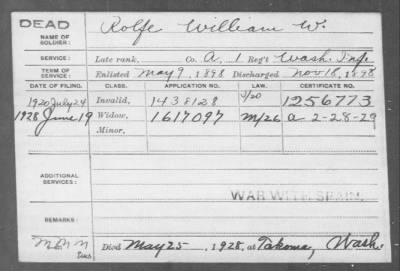 DEAD
NAME OF SOLDIER: Rolfe William W.
SERVICE: Late rank, Co. A, 1 Reg't Wash. Inf.
TERM OF SERVICE: Enlisted May 9, 1898 Discharged Nov 18, 1898
DATE OF FILING. CLASS. APPLICATION NO. LAW. CERTIFICATE NO.
1920 July 24 Invalid, 1438128 J/20 1256773
1928 June 19 Widow, 1617097 M/26 a 2-28-29
Minor,
ADDITIONAL SERVICES:
WAR WITH SPAIN.
REMARKS:
Died May 25, 1928, at Takoma, Wash.